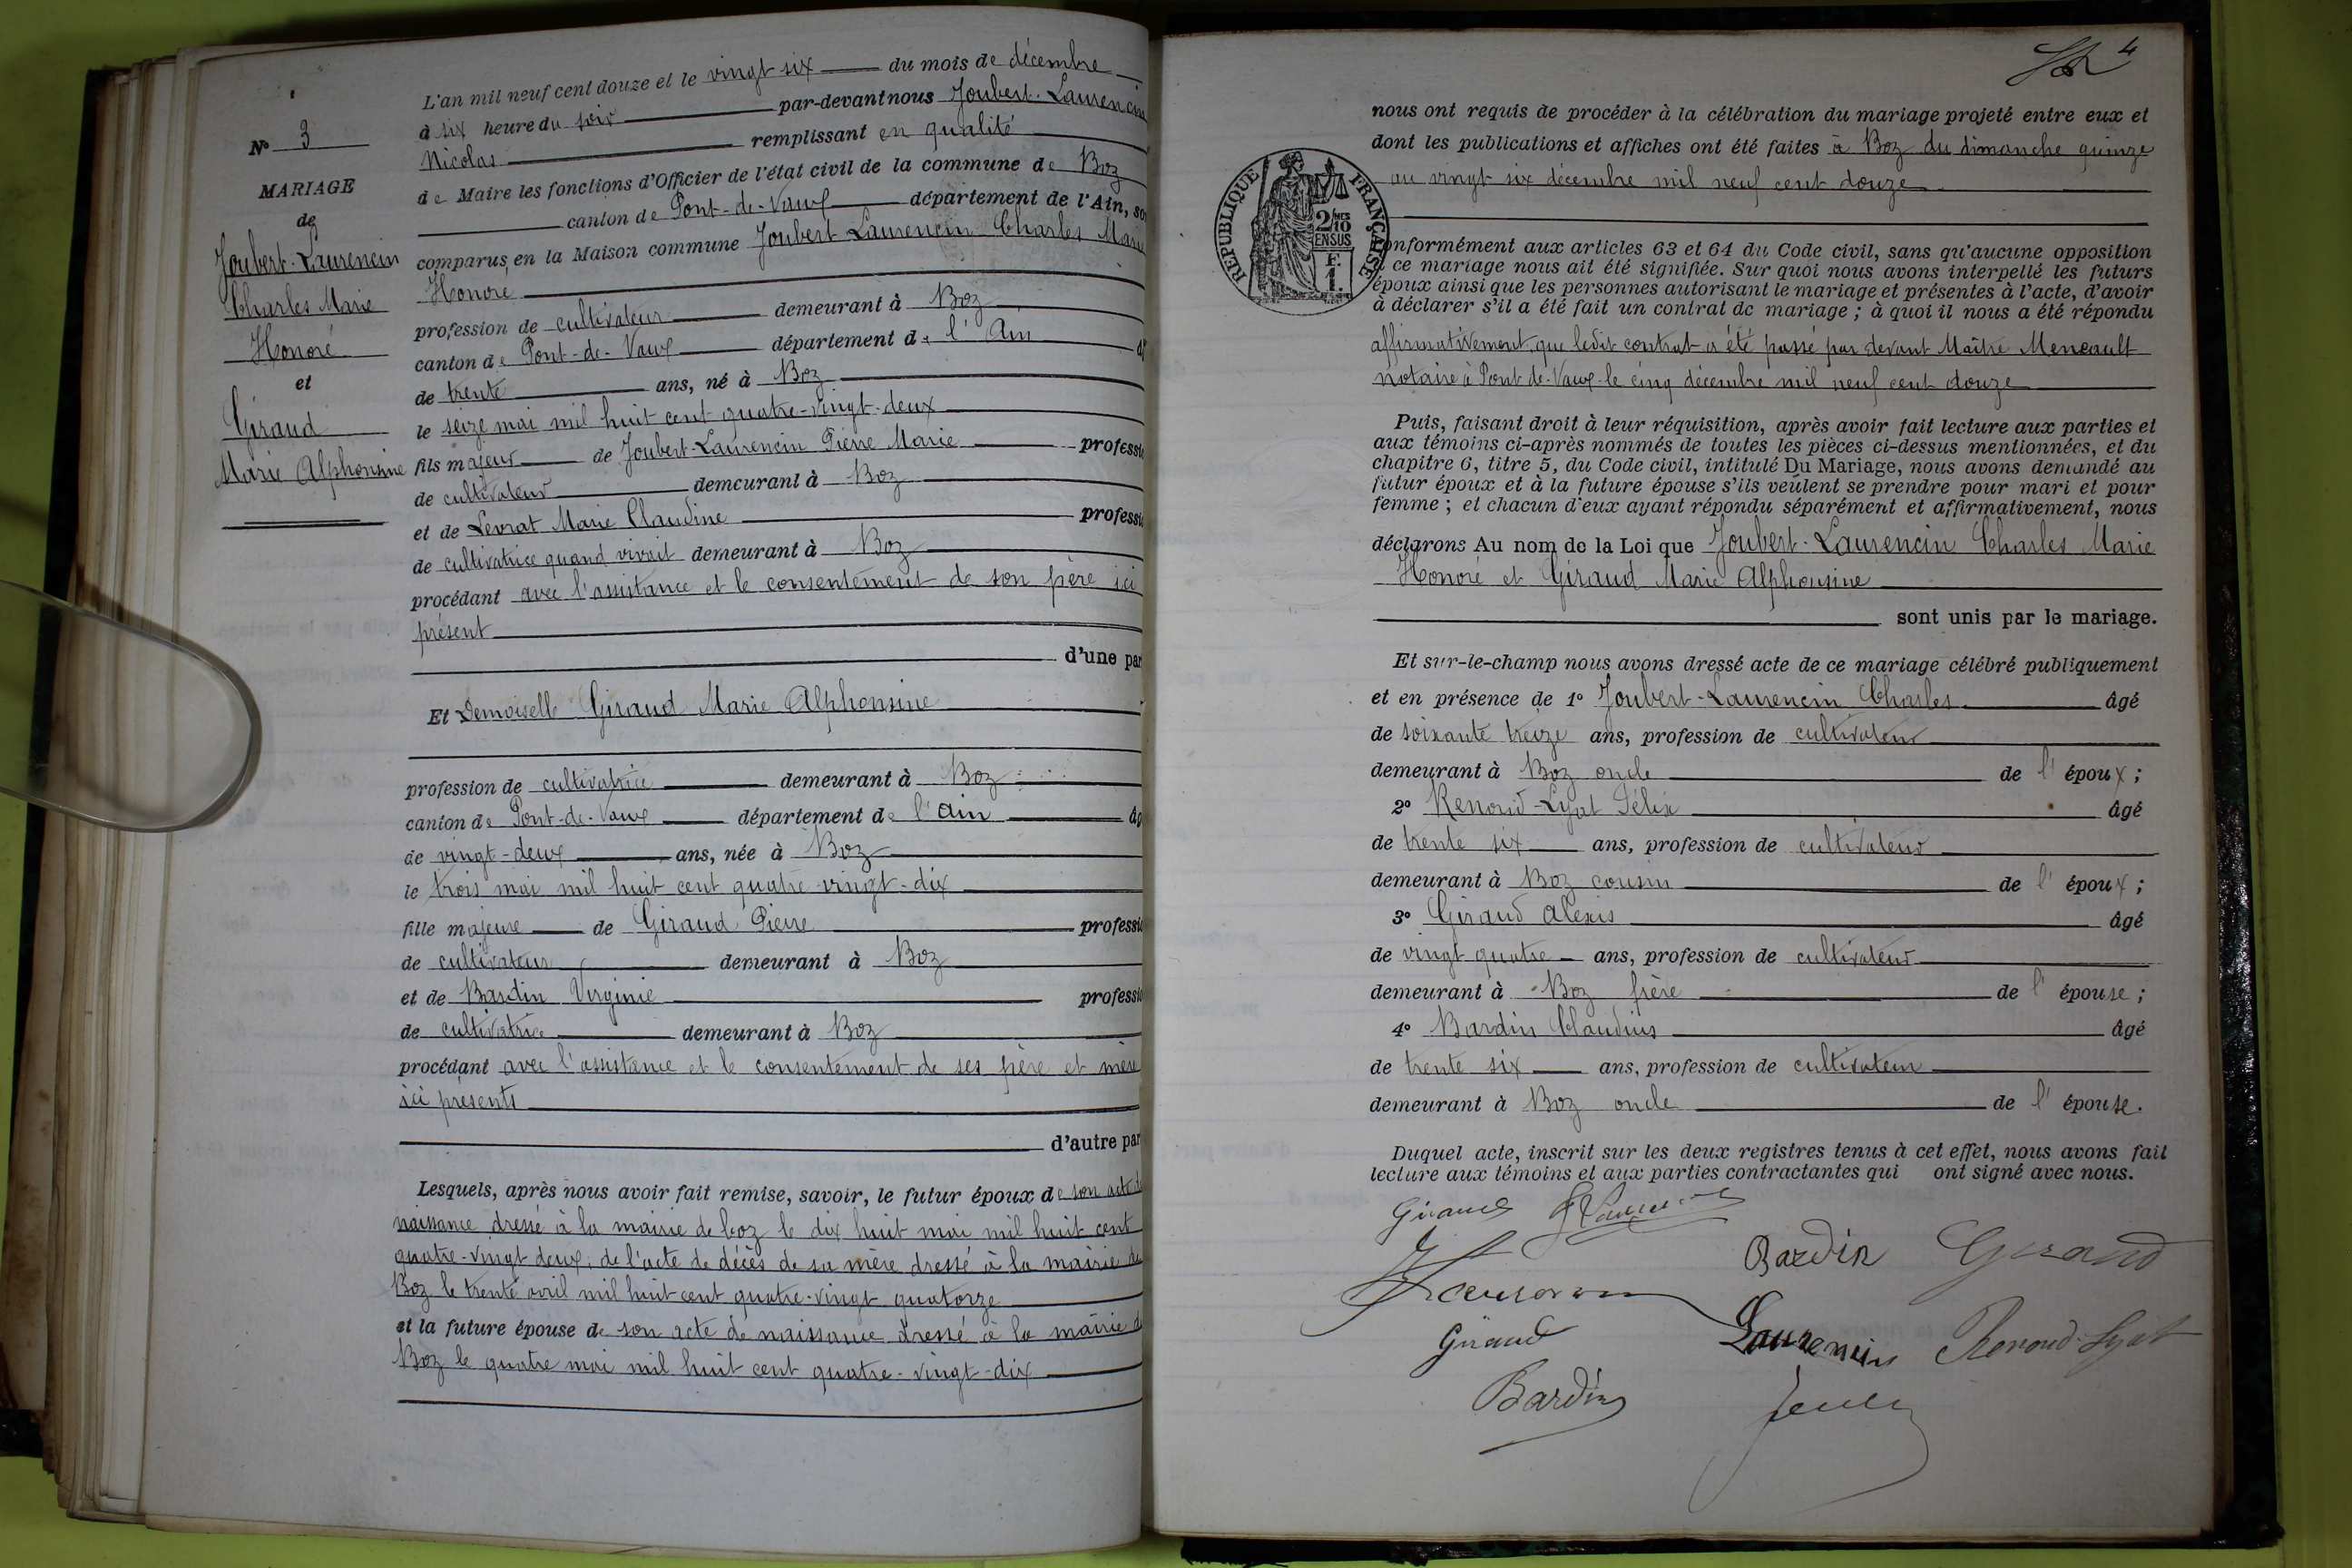 L'an mil neuf cent douze et le vingt six du mois de décembre
à six heure du soir par-devant nous Joubert-Laurencin
Nicolas remplissant en qualité
de Maire les fonctions d'Officier de l'état civil de la commune de Boz
canton de Pont-de-Vaux département de l'Ain, so
comparus en la Maison commune Joubert Laurencin Charles Marie
Honoré
profession de cultivateur demeurant à Boz
canton de Pont-de-Vaux département de l'Ain
de trente ans, né à Boz
le seize mai mil huit cent quatre-vingt-deux
fils majeur de Joubert-Laurencin Pierre Marie professi
de cultivateur demeurant à Boz
et de Levrat Marie Claudine professi
de cultivatrice quand vivait demeurant à Boz
procédant avec l'assistance et le consentement de son père ici
présent
d'une par
Et Demoiselle Giraud Marie Alphonsine
profession de cultivatrice demeurant à Boz
canton de Pont-de-Vaux département de l'Ain âg
de vingt-deux ans, née à Boz
le trois mai mil huit cent quatre vingt-dix
fille majeure de Giraud Pierre professi
de cultivateur demeurant à Boz
et de Bardin Virginie professi
de cultivatrice demeurant à Boz
procédant avec l'assistance et le consentement de ses père et mère
ici présents
d'autre par
Lesquels, après nous avoir fait remise, savoir, le futur époux de son acte de
naissance dressé à la mairie de boz le dix huit mai mil huit cent
quatre-vingt deux, de l'acte de décès de sa mère dressé à la mairie de
Boz le trente avril mil huit cent quatre-vingt quatorze
et la future épouse de son acte de naissance dressé à la mairie d
Boz le quatre mai mil huit cent quatre-vingt-dix
N° 3
MARIAGE
de
Joubert-Laurencin
Charles Marie
Honoré
et
Giraud
Marie Alphonsine
4
nous ont requis de procéder à la célébration du mariage projeté entre eux et
dont les publications et affiches ont été faites à Boz du dimanche quinze
au vingt six décembre mil neuf cent douze
RÉPUBLIQUE FRANÇAISE
2/10
EN SUS
F.
1.
onformément aux articles 63 et 64 du Code civil, sans qu'aucune opposition
ce mariage nous ait été signifiée. Sur quoi nous avons interpellé les futurs
époux ainsi que les personnes autorisant le mariage et présentes à l'acte, d'avoir
à déclarer s'il a été fait un contrat de mariage ; à quoi il nous a été répondu
affirmativement que ledit contrat a été passé par devant Maître Meneault
notaire à Pont de-Vaux le cinq décembre mil neuf cent douze
Puis, faisant droit à leur réquisition, après avoir fait lecture aux parties et
aux témoins ci-après nommés de toutes les pièces ci-dessus mentionnées, et du
chapitre 6, titre 5, du Code civil, intitulé Du Mariage, nous avons demandé au
futur époux et à la future épouse s'ils veulent se prendre pour mari et pour
femme ; et chacun d'eux ayant répondu séparément et affirmativement, nous
déclarons Au nom de la Loi que Joubert-Laurencin Charles Marie
Honoré et Giraud Marie Alphonsine
sont unis par le mariage.
Et sur-le-champ nous avons dressé acte de ce mariage célébré publiquement
et en présence de 1° Joubert-Laurencin Charles âgé
de soixante treize ans, profession de cultivateur
demeurant à Boz oncle de l'époux ;
2° Renoud-Lyat Félix âgé
de trente six ans, profession de cultivateur
demeurant à Boz cousin de l'époux ;
3° Giraud Alexis âgé
de vingt quatre ans, profession de cultivateur
demeurant à Boz frère de l'épouse ;
4° Bardin Claudius âgé
de trente six ans, profession de cultivateur
demeurant à Boz oncle de l'épouse.
Duquel acte, inscrit sur les deux registres tenus à cet effet, nous avons fait
lecture aux témoins et aux parties contractantes qui ont signé avec nous.
Giraud
Bardin Giraud
Giraud Laurencin Renoud-Lyat
Bardin